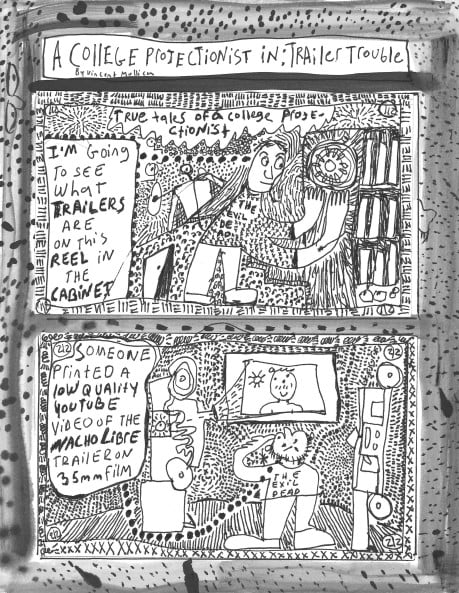 A COLLEGE PROJECTIONIST IN: TRAILER TROUBLE
By Vincent
True tales of a college Proje-
ctionist
I'M GOING
TO SEE
WHAT
TRAILERS
ARE
ON THIS
REEL IN
THE
CABINET
THE
EVIL
DE
1/2
SOMEONE
PRINTED A
LOW QUALITY
YOUTUBE
VIDEO OF THE
NACHO LIBRE
TRAILER ON
35mm FILM
2/2
THE
DEAD
2/2